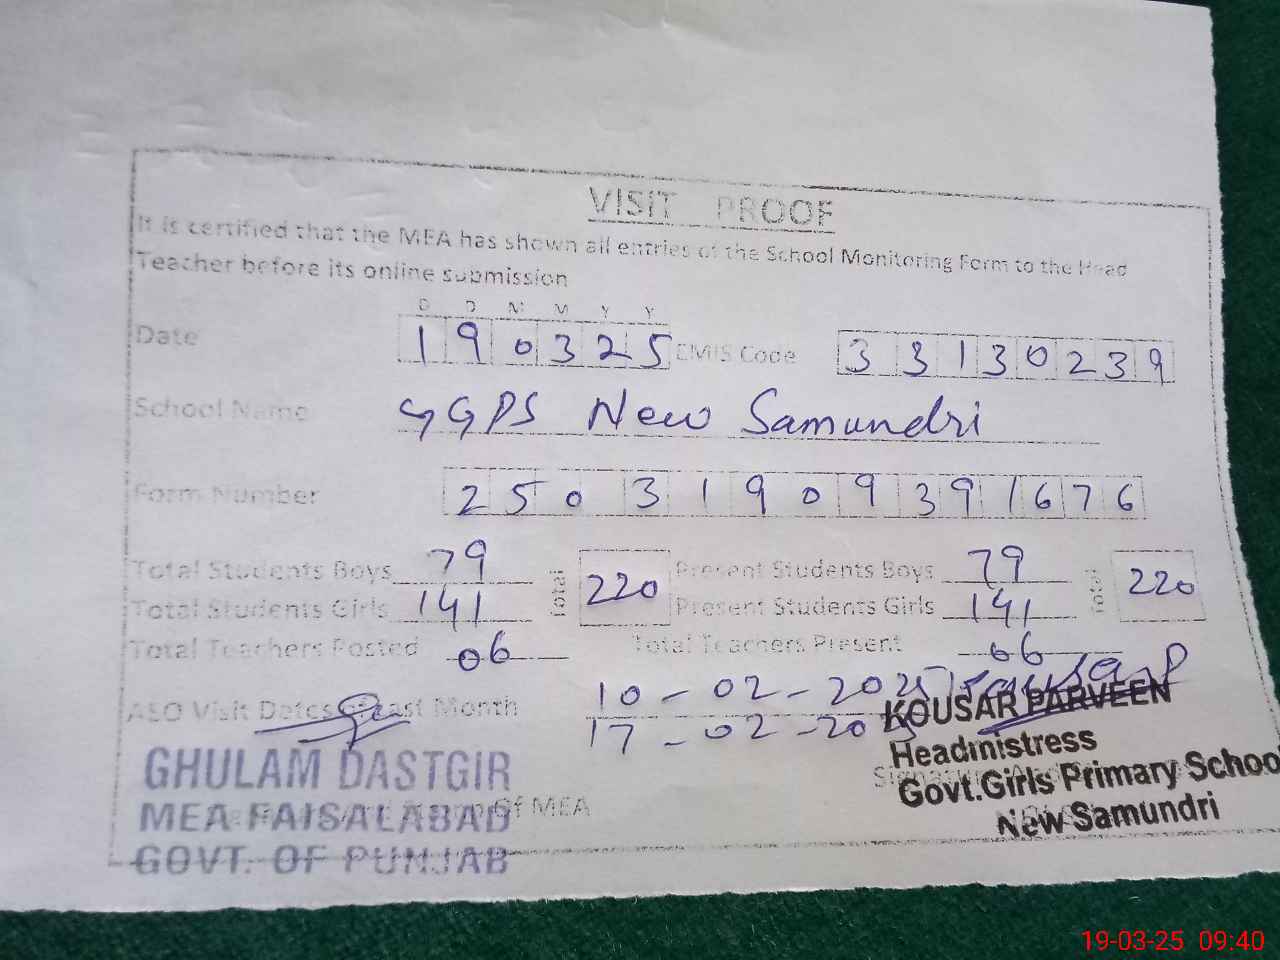 VISIT PROOF
It is certified that the MEA has shown all entries of the School Monitoring Form to the Head
Teacher before its online submission
D D M M Y Y
Date 190325 EMIS Code 33130239
School Name GGPS New Samundri
Form Number 25031909391676
Total Students Boys 79 Total 220 Present Students Boys 79 Total 220
Total Students Girls 141 Present Students Girls 141
Total Teachers Posted 06 Total Teachers Present 06
AEO Visit Dates of Last Month 10-02-2025
17-02-2025
KOUSAR PARVEEN
Headmistress
Govt.Girls Primary School
New Samundri
GHULAM DASTGIR
MEA FAISALABAD Of MEA
GOVT. OF PUNJAB
19-03-25 09:40